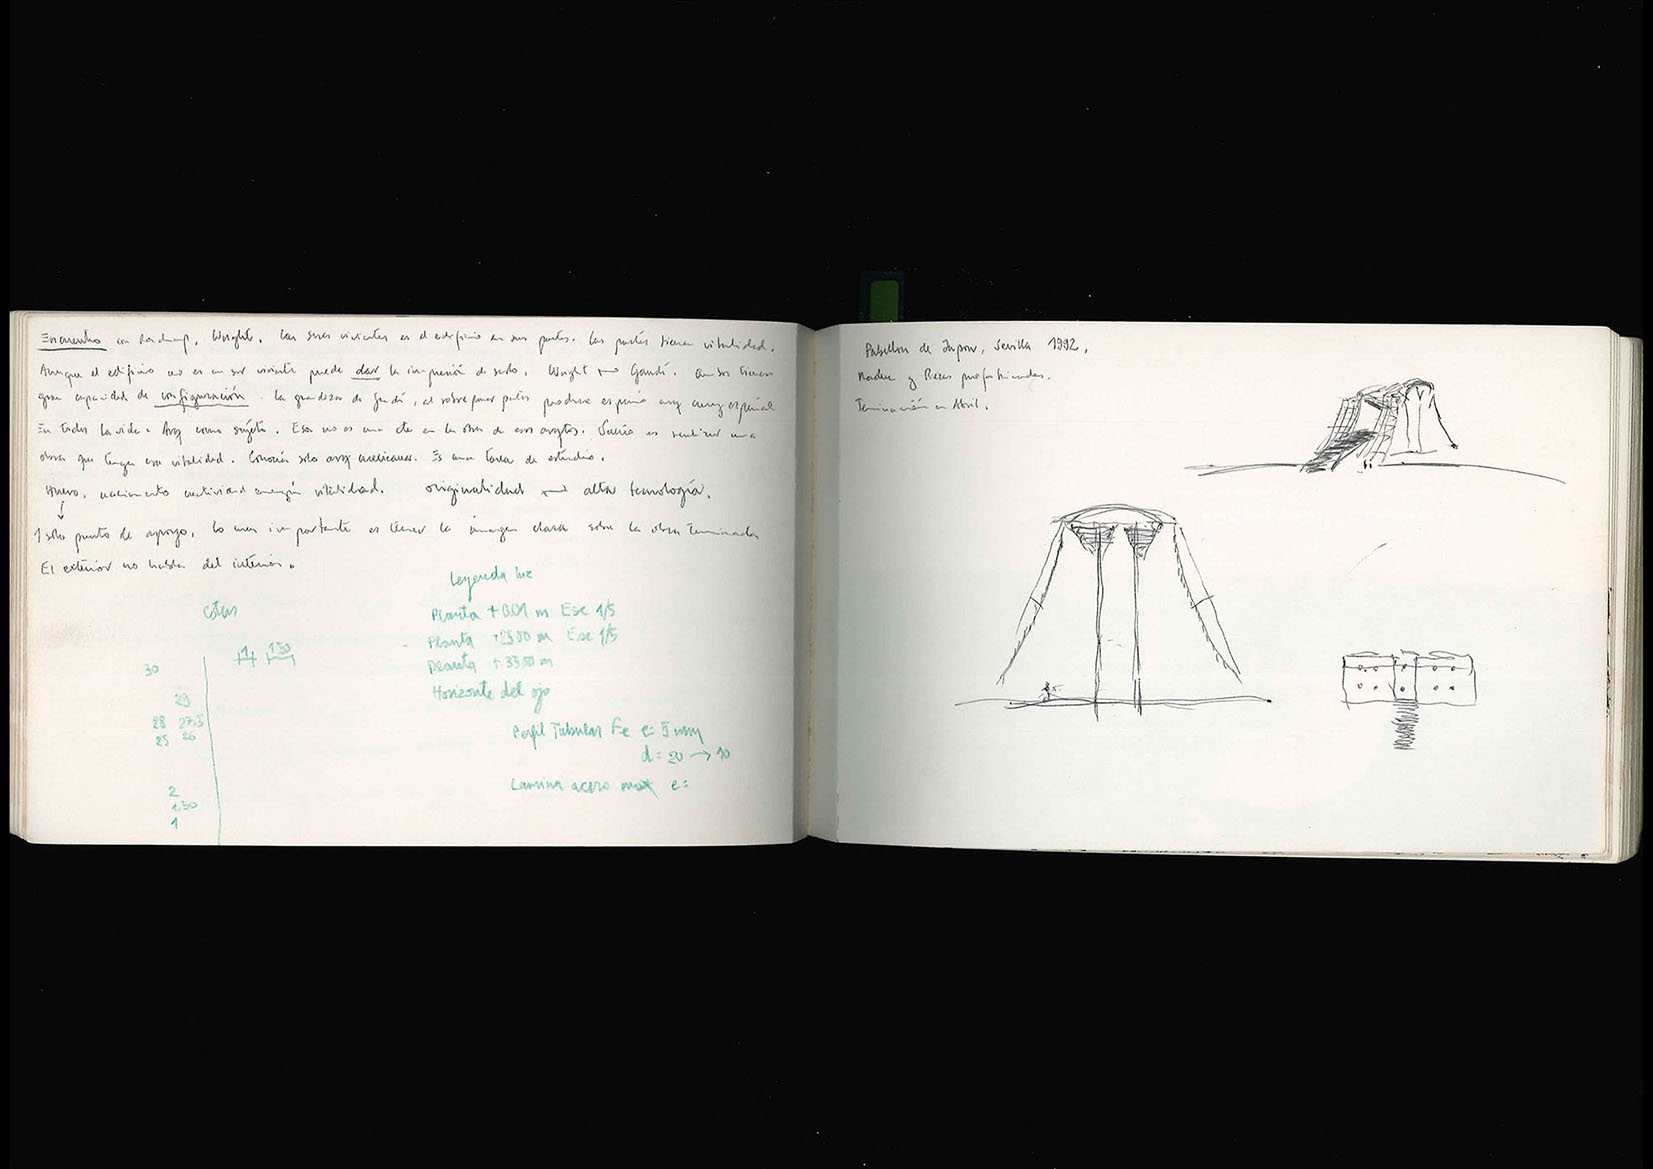 Encuentro con Wright. Los seres vivientes es el edificio en sus partes. Las partes tienen vitalidad.
Aunque el edificio no es un ser viviente puede dar la impresión de serlo. Wright Gaudí. Ambos tienen
gran capacidad de configuración. La grandeza de Gaudí, al sobreponer partes produce
En todos la vida. Arq como sujeto. Esa no es una cte en la obra de esos arqtos. Sueño es realizar una
obra que tenga esa vitalidad. Conocía solo arq. Es una tarea de estudio.
Huevo, nacimiento creatividad energía vitalidad. originalidad alta tecnología.
↓
1 solo punto de apoyo. Lo mas importante es tener la imagen clara sobre la obra terminada
El exterior no habla del interior.
Leyenda luz
cotas
Planta +0.01 m Esc 1/5
Planta +25.00 m Esc 1/5
Planta +35.00 m
Horizonte del ojo
1 1.50
30
29
28 27.5
25 26
Perfil Tubular Fe e= 5 mm
d= 20 → 10
Lamina acero e=
2
1.50
1
Pabellon de Japon, Sevilla 1992.
Madera y Piezas prefabricadas.
Terminación en Abril.